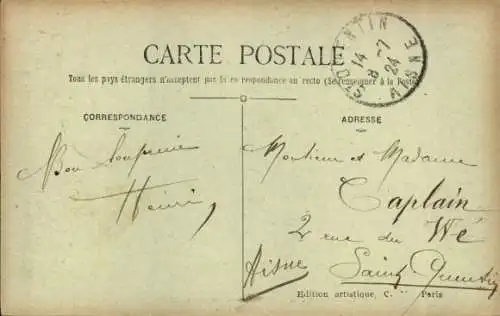 CARTE POSTALE
Tous les pays étrangers n'acceptent pas la correspondance au recto (Se renseigner à la Poste)
CORRESPONDANCE
ADRESSE
Bon
Henri,
Monsieur et Madame
Caplain
2 rue du Wé
Saint-Quentin
Aisne
Edition artistique, C. Paris
ST QUENTIN
14
8-7
24
AISNE